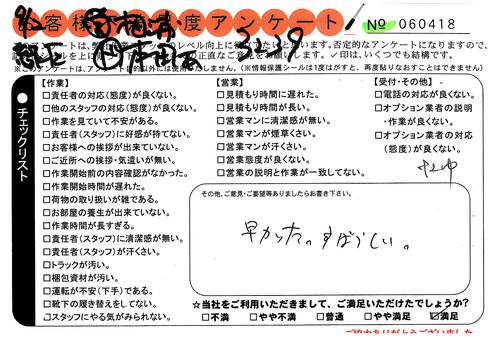 お客様満足度アンケート
No 060418
3239
すアンケートは、弊社
レベル向上に
います。否定的なアンケートになりますので、
正直なご意見をお願いします。✓印は、いくつでも結構です。
※このアンケートは、アンケート目的以外には使用いたしません。(※情報保護シールは1度はがすと、再度貼りなおすことはできません)
チェックリスト
【作業】
□責任者の対応(態度)が良くない。
□他のスタッフの対応(態度)が良くない。
□作業を見ていて不安がある。
□責任者(スタッフ)に好感が持てない。
□お客様への挨拶が出来ていない。
□ご近所への挨拶・気遣いが無い。
□作業開始前の内容確認がなかった。
□作業開始時間が遅れた。
□荷物の取り扱いが雑である。
□お部屋の養生が出来ていない。
□作業時間が長すぎる。
□責任者(スタッフ)に清潔感が無い。
□責任者(スタッフ)が汗くさい。
□トラックが汚い。
□梱包資材が汚い。
□運転が不安(下手)である。
□靴下の履き替えをしてない。
□スタッフにやる気がみられない。
【営業】
□見積もり時間に遅れた。
□見積もり時間が長い。
□営業マンに清潔感が無い。
□営業マンが煙草くさい。
□営業マンが汗くさい。
□営業態度が良くない。
□営業の説明と作業が一致してない。
【受付・その他】
□電話の対応が良くない。
□オプション業者の説明
・作業が良くない。
□オプション業者の対応
(態度)が良くない。
その他、ご意見・ご要望等ありましたらお書き下さい。
早かった。すばらしい。
☆当社をご利用いただきまして、ご満足いただけたでしょうか?
□不満 □やや不満 □普通 □やや満足 ☑満足
ご協力ありがとうございました